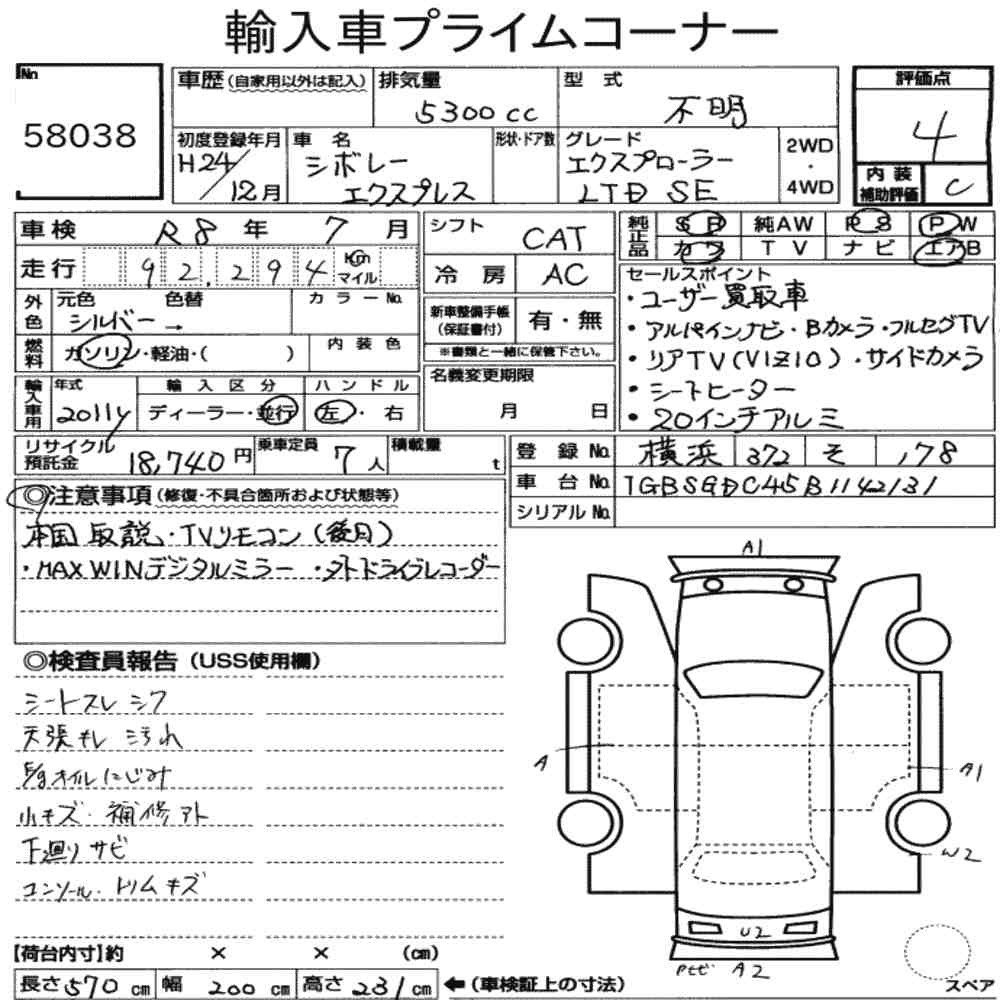 輸入車プライムコーナー
No
58038
車歴(自家用以外は記入)
排気量
5300cc
型 式
不明
評価点
4
内装
補助評価
C
初度登録年月
H24/12月
車 名
シボレー
エクスプレス
形状・ドア数
グレード
エクスプローラー
LTD SE
2WD
・
4WD
車検 R8 年 7 月
走行 92,294 Km
マイル
外色
元色 色替
シルバー→
カラーNo.
燃料
ガソリン・軽油・( )
内装色
輸入車用
年式
2011y
輸入区分
ディーラー・並行
ハンドル
左・右
リサイクル
預託金 18,740円
乗車定員
7人
積載量
t
シフト CAT
冷房 AC
新車整備手帳
(保証書付) 有・無
※書類と一緒に保管下さい。
名義変更期限
月 日
純正品
SR 純AW PS PW
カワ TV ナビ エアB
セールスポイント
・ユーザー買取車
・アルパインナビ・Bカメラ・フルセグTV
・リアTV(VIZIO)・サイドカメラ
・シートヒーター
・20インチアルミ
登録No. 横浜 372 そ ,178
車台No. 1GBSGDC45B1142131
シリアルNo.
◎注意事項(修復・不具合箇所および状態等)
本国取説・TVリモコン(後日)
・MAXWINデジタルミラー ・タトドライブレコーダー
◎検査員報告(USS使用欄)
シートスレ シワ
天張キレ 汚れ
E/gオイルにじみ
小キズ・補修アト
下廻りサビ
コンソール・トリムキズ
【荷台内寸】約 × × (cm)
長さ570cm 幅 200cm 高さ231cm ←(車検証上の寸法)
A1
A
A1
W2
U2
A2
スペア